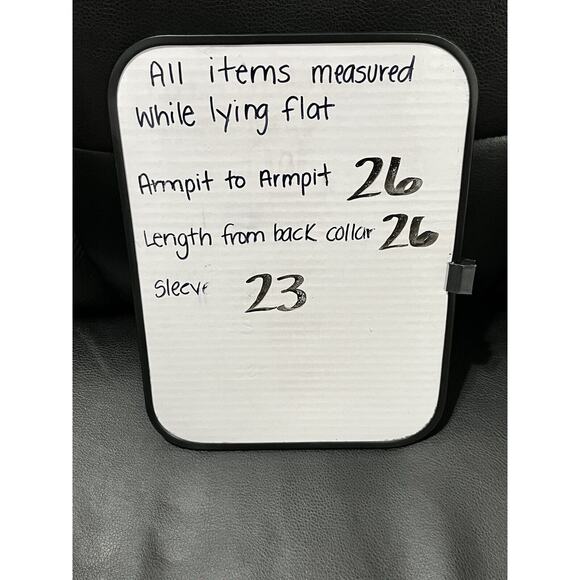 All items measured
while lying flat
Armpit to Armpit 26
Length from back collar 26
Sleeve 23